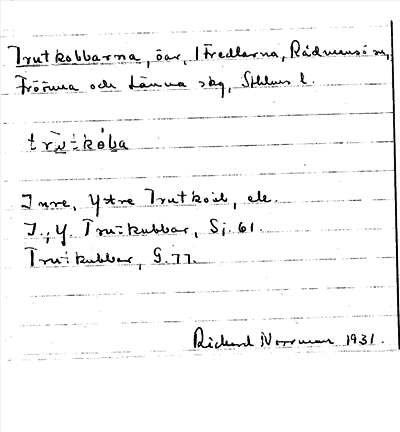 Trutkobbarna, öar, i Fredlarna, Rådmansö sn,
Frötuna och Länna skg, Sthlms l.
trutkoba
Inre, Yttre Trutkob, ek.
I., Y. Trutkubbar, Sj. 61.
Trutkubbar, G. 77.
Rickard Norrman 1931.